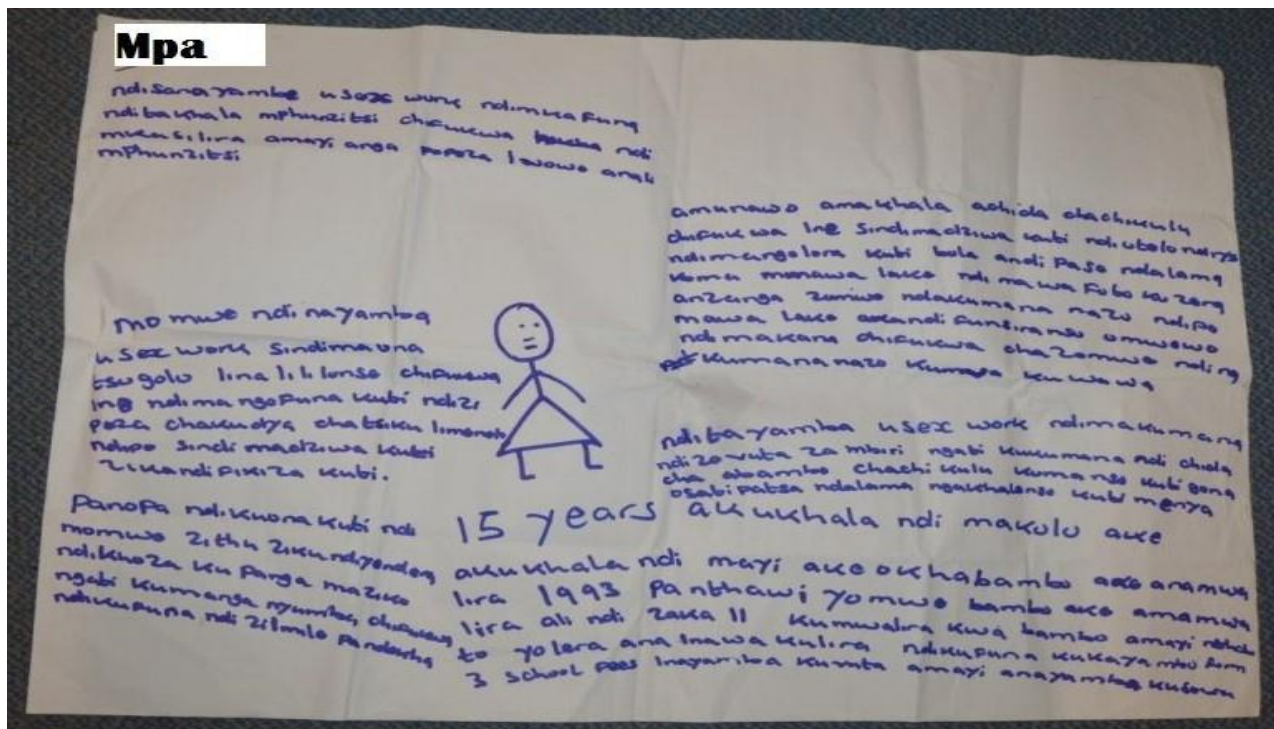 Mpa
ndisanayambe usex work ndimkafuna
ndibakhala mphunzitsi chifukwa ndi
mkasilira amayi anga popeza iwowo anali
mphunzitsi
amunawo amakhala achida chachikulu
chifukwa ine sindimadziwa kubi ndiutolondizo
ndimangolora kubi bola andipaso ndalama
koma mmawa lake ndimawafubokuzera
anzanga zomwe ndakumana nazo ndipo
mawa lake akandifunsiranso omwewo
ndimakana chifukwa cha zomwe ndina
kumanana nazo kumasa kuwawa
momwe ndinayambaa
usex work sindimaona
tsogolo lina lililonse chifukwa
ine ndimangofuna kubi ndizi
poza chakudya chatsiku limonelo
ndipo sindimadziwa kubi
zikandifikiza kubi.
ndibayamba usex work ndimakumana
ndizovuta za mbiri ngabi kukumana ndi chida
cha abambo chachikulu komanso kubi gona
osabipatsa ndalama ngakhalenso kubi menya
panopa ndikuona kubi ndi
momwe zithu zikundiyendea
ndikhoza ku panga maziko
ngabi kumanga nyumba, chifukwa
ndikufuna ndizilimilo pandekha
15 years akukhala ndi makolo ake
akukhala ndi mayi ake okha bambo ake anamwa
lira 1993 panthawi yomwe bambo ake amamwa
lira ali ndi zaka 11 kumwalira kwa bambo amayi
to yolera ana inawa kulira ndikufuna kukayamba form
3 school fees inayamba kuvuta amayi anayamba kudwa